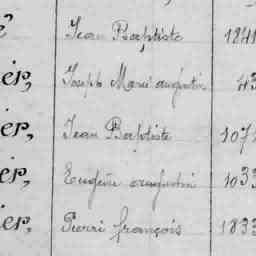 é Jean Baptiste 1841
ier, Joseph Marie augustin 43
ier, Jean Baptiste 107
ier, Eugène augustin 1033
ier, Pierre françois 1833